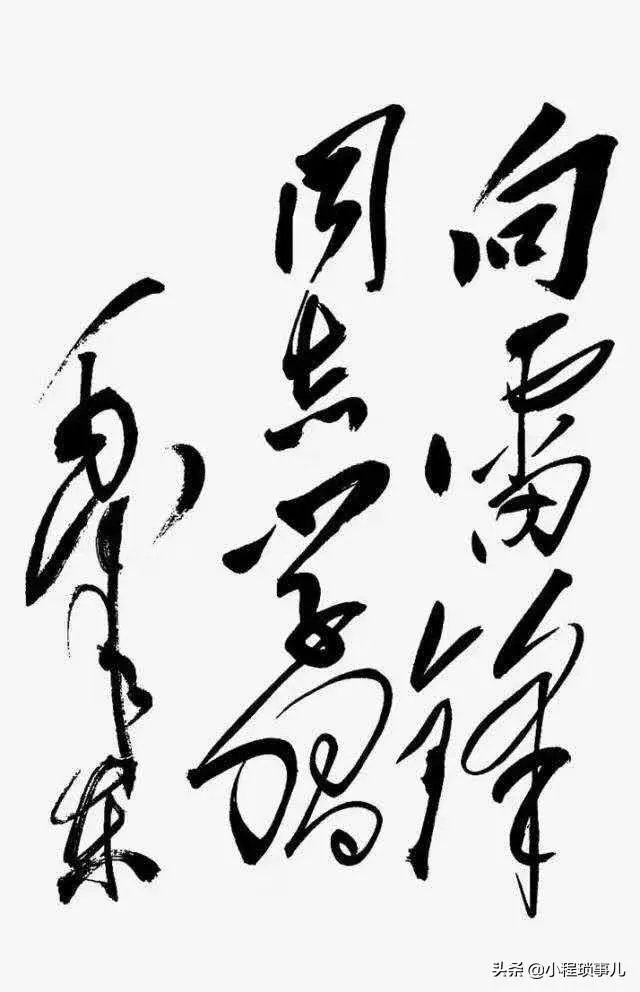 向雷锋
同志学习
毛泽东
头条 @小程琐事儿